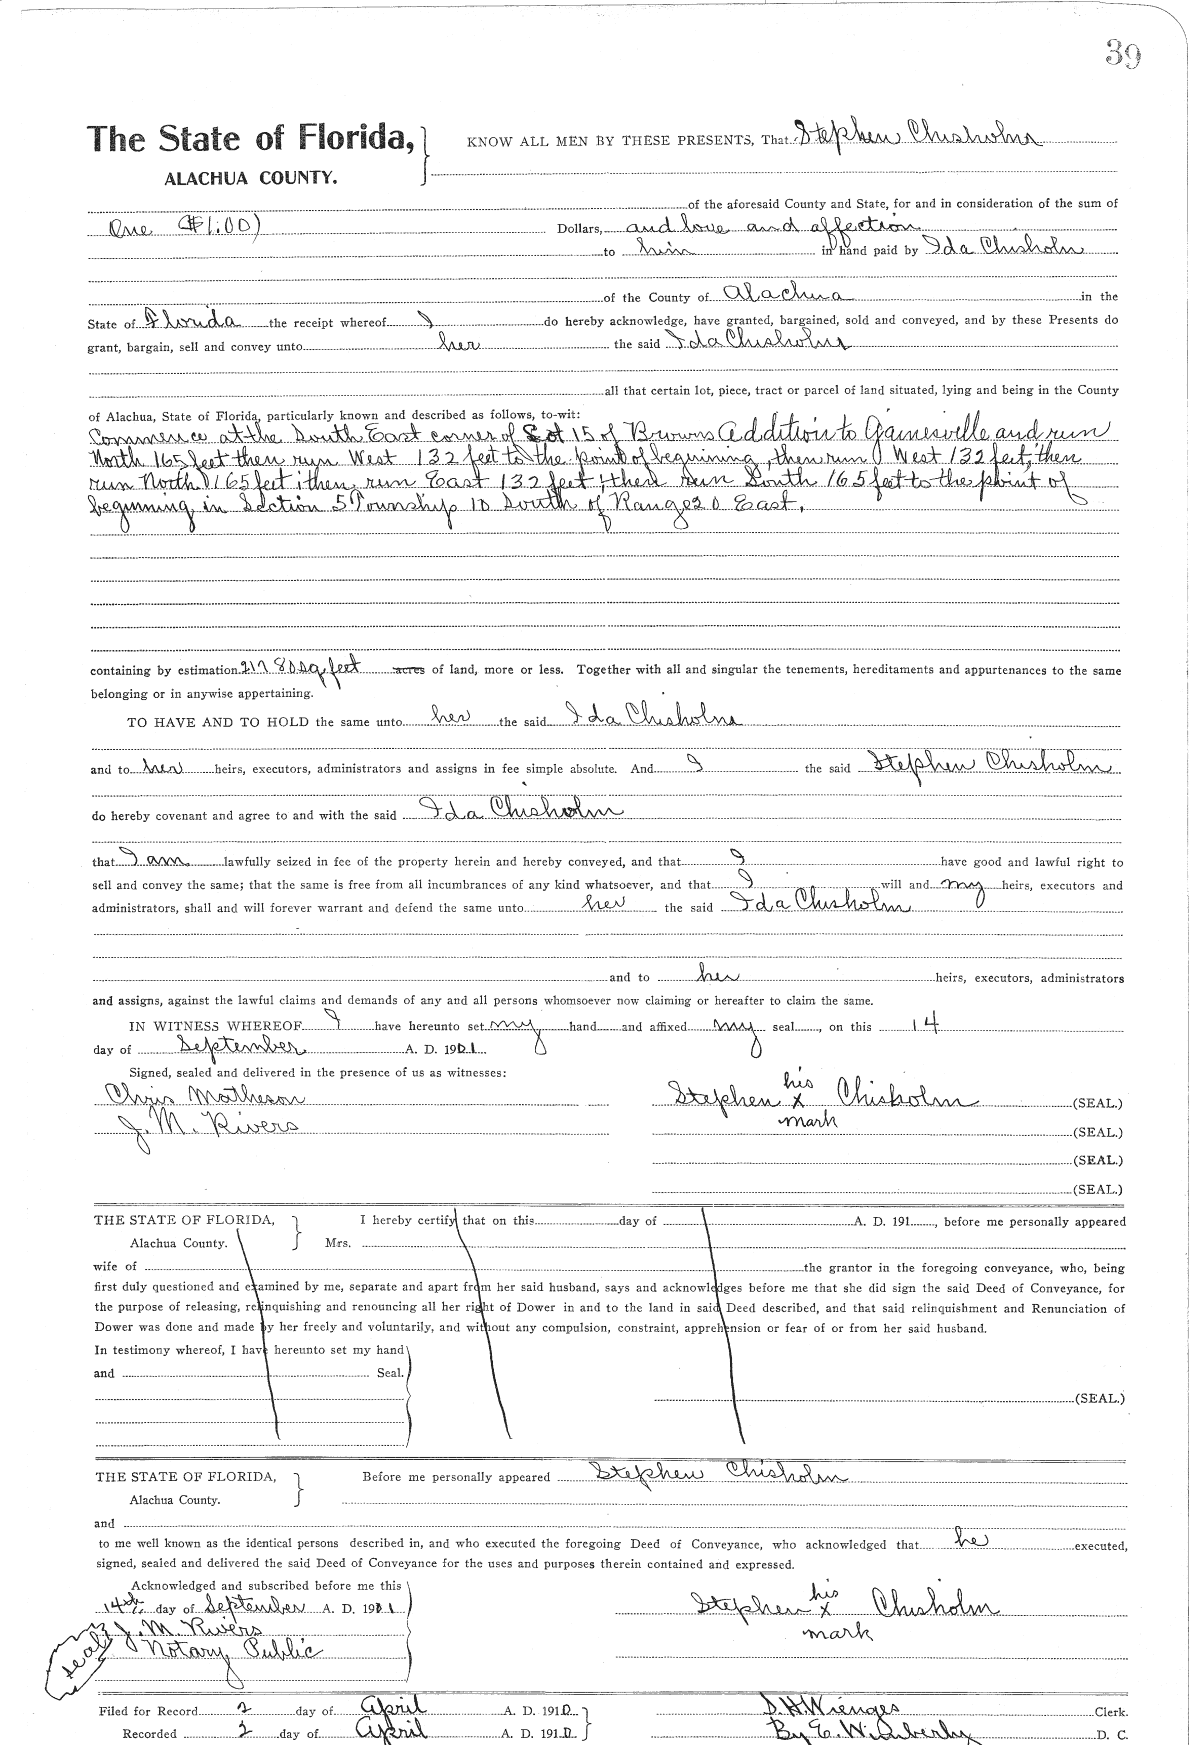 39
The State of Florida, KNOW ALL MEN BY THESE PRESENTS, That Stephen Chisholm
ALACHUA COUNTY.
of the aforesaid County and State, for and in consideration of the sum of
One ($1.00) Dollars, and love and affection
to him in hand paid by Ida Chisholm
of the County of Alachua in the
State of Florida the receipt whereof I do hereby acknowledge, have granted, bargained, sold and conveyed, and by these Presents do
grant, bargain, sell and convey unto her the said Ida Chisholm
all that certain lot, piece, tract or parcel of land situated, lying and being in the County
of Alachua, State of Florida, particularly known and described as follows, to-wit:
Commence at the South East corner of Lot 15 of Browns Addition to Gainesville and run
North 165 feet then run West 132 feet to the point of beginning, then run West 132 feet, then
run North 165 feet; then run East 132 feet; then run South 165 feet to the point of
beginning in Section 5 Township 10 South of Range 20 East.
containing by estimation 21780 sq feet acres of land, more or less. Together with all and singular the tenements, hereditaments and appurtenances to the same
belonging or in anywise appertaining.
TO HAVE AND TO HOLD the same unto her the said Ida Chisholm
and to her heirs, executors, administrators and assigns in fee simple absolute. And I the said Stephen Chisholm
do hereby covenant and agree to and with the said Ida Chisholm
that I am lawfully seized in fee of the property herein and hereby conveyed, and that I have good and lawful right to
sell and convey the same; that the same is free from all incumbrances of any kind whatsoever, and that I will and my heirs, executors and
administrators, shall and will forever warrant and defend the same unto her the said Ida Chisholm
and to her heirs, executors, administrators
and assigns, against the lawful claims and demands of any and all persons whomsoever now claiming or hereafter to claim the same.
IN WITNESS WHEREOF I have hereunto set my hand and affixed my seal, on this 14
day of September A. D. 1901
Signed, sealed and delivered in the presence of us as witnesses:
his
Chris Matheson Stephen x Chisholm (SEAL.)
mark
J. M. Rivers (SEAL.)
(SEAL.)
(SEAL.)
THE STATE OF FLORIDA, I hereby certify that on this day of A. D. 191 , before me personally appeared
Alachua County. Mrs.
wife of the grantor in the foregoing conveyance, who, being
first duly questioned and examined by me, separate and apart from her said husband, says and acknowledges before me that she did sign the said Deed of Conveyance, for
the purpose of releasing, relinquishing and renouncing all her right of Dower in and to the land in said Deed described, and that said relinquishment and Renunciation of
Dower was done and made by her freely and voluntarily, and without any compulsion, constraint, apprehension or fear of or from her said husband.
In testimony whereof, I have hereunto set my hand
and Seal.
(SEAL.)
THE STATE OF FLORIDA, Before me personally appeared Stephen Chisholm
Alachua County.
and
to me well known as the identical persons described in, and who executed the foregoing Deed of Conveyance, who acknowledged that he executed,
signed, sealed and delivered the said Deed of Conveyance for the uses and purposes therein contained and expressed.
Acknowledged and subscribed before me this
his
14th day of September A. D. 1901 Stephen x Chisholm
mark
J. M. Rivers
seal Notary Public
Filed for Record 2 day of April A. D. 1910 D. H. Wienges Clerk.
Recorded 2 day of April A. D. 1910 By E. Wimberly D. C.